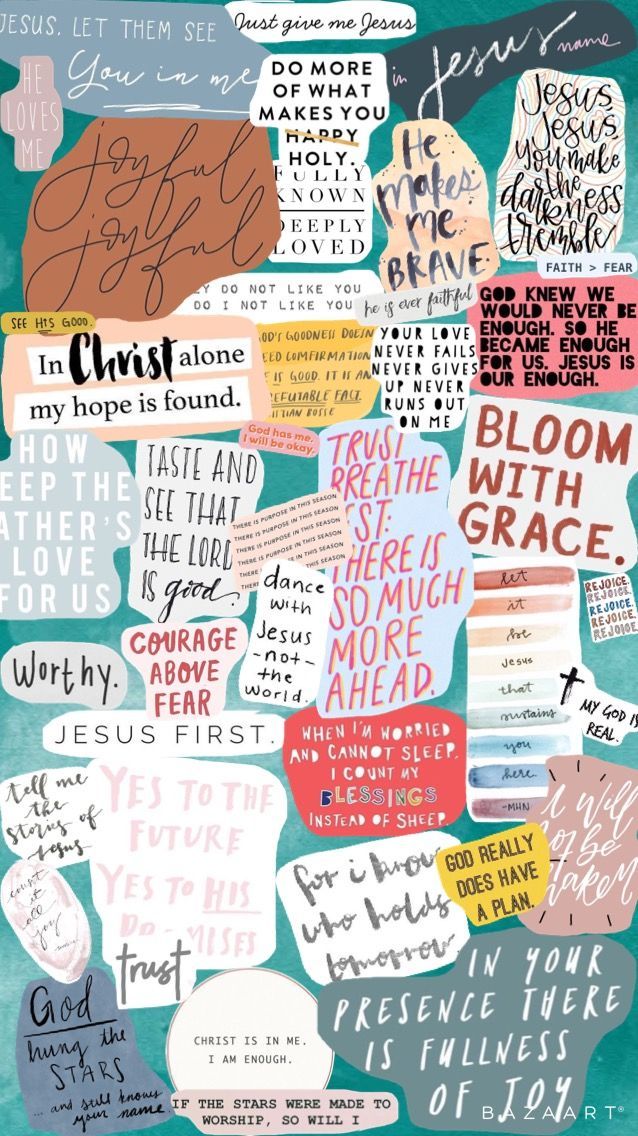 JESUS, LET THEM SEE
You in me
Just give me Jesus
in Jesus name
HE
LOVES
ME
DO MORE
OF WHAT
MAKES YOU
HAPPY
HOLY.
joyful
joyful
FULLY
KNOWN
DEEPLY
LOVED
He
makes
me
BRAVE
Jesus,
Jesus,
you make
the
darkness
tremble
FAITH > FEAR
DO NOT LIKE YOU
DO I NOT LIKE YOU
he is ever faithful
GOD KNEW WE
WOULD NEVER BE
ENOUGH. SO HE
BECAME ENOUGH
FOR US. JESUS IS
OUR ENOUGH.
SEE HIS GOOD.
In Christ alone
my hope is found.
GOD'S GOODNESS
COMFIRMATION
IS GOOD. IT IS AN
REFUTABLE FACT
BOSSE
YOUR LOVE
NEVER FAILS
NEVER GIVES
UP NEVER
RUNS OUT
ON ME
God has me.
I will be okay.
HOW
EEP THE
ATHER'S
LOVE
FOR US
TASTE AND
SEE THAT
THE LORD
IS good.
THERE IS PURPOSE IN THIS SEASON
THERE IS PURPOSE IN THIS SEASON
THERE IS PURPOSE IN THIS SEASON
THERE IS PURPOSE IN THIS SEASON
THERE IS PURPOSE IN THIS SEASON
THERE
TRUST
BREATHE
ST:
THERE IS
SO MUCH
MORE
AHEAD.
BLOOM
WITH
GRACE.
dance
with
Jesus
-not-
the
world.
let
it
be
Jesus
that
sustains
you
here.
-MHN
REJOICE.
REJOICE.
REJOICE.
REJOICE.
REJOICE
MY GOD IS
REAL.
Worthy.
COURAGE
ABOVE
FEAR
JESUS FIRST.
WHEN I'M WORRIED
AND CANNOT SLEEP,
I COUNT MY
BLESSINGS
INSTEAD OF SHEEP.
tell me
the
stories of
Jesus
YES TO THE
FUTURE
YES TO HIS
PROMISES
count
it
all
joy
trust.
for i know
who holds
tomorrow
GOD REALLY
DOES HAVE
A PLAN.
I will
not be
shaken
God
hung the
STARS
... and still knows
your name.
CHRIST IS IN ME.
I AM ENOUGH.
IF THE STARS WERE MADE TO
WORSHIP, SO WILL I
IN YOUR
PRESENCE THERE
IS FULLNESS
OF JOY.
BAZAART®